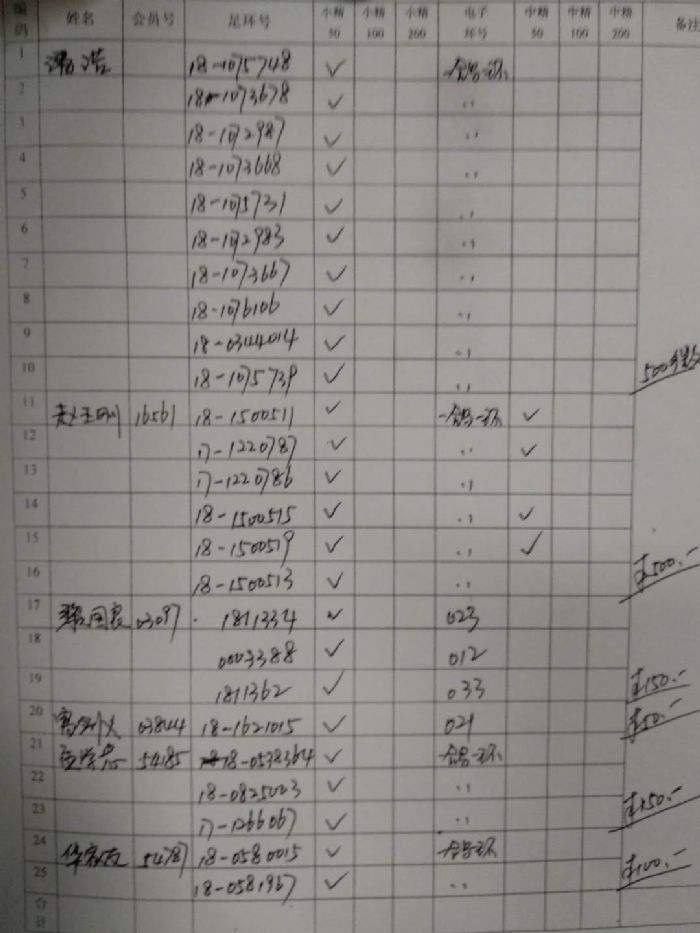 编码 姓名 会员号 足环号 小精50 小精100 小精200 电子环号 中精50 中精100 中精200 备注
1 浩 18-1075748 ✓ 一鸽一环
2 18-1073678 ✓ 〃
3 18-1072987 ✓ 〃
4 18-1073668 ✓ 〃
5 18-1075731 ✓ 〃
6 18-1072983 ✓ 〃
7 18-1073667 ✓ 〃
8 18-1076106 ✓ 〃
9 18-0344014 ✓ 〃
10 18-1075739 ✓ 〃 500
11 赵玉刚 16561 18-1500511 ✓ 一鸽一环 ✓
12 17-1220787 ✓ 〃 ✓
13 17-1220786 ✓ 〃
14 18-1500515 ✓ 〃 ✓
15 18-1500519 ✓ 〃 ✓
16 18-1500513 ✓ 〃 ¥500.-
17 国良 03097 1811334 ✓ 023
18 0003388 ✓ 012
19 1811362 ✓ 033 ¥150.-
20 03844 18-1621015 ✓ 021 ¥50.-
21 54185 18-0538364 ✓ 一鸽一环
22 18-0825003 ✓ 〃
23 17-1266067 ✓ 〃 ¥150.-
24 华 54787 18-0580015 ✓ 一鸽一环
25 18-0581967 ✓ 〃 ¥100.-
合计